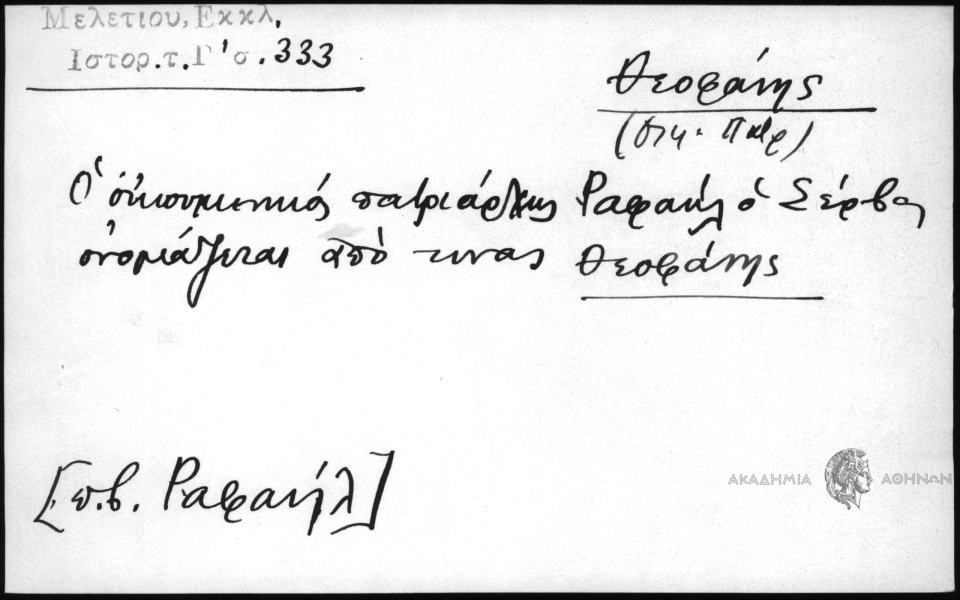 Μελετίου, Εκκλ.
Ιστορ. τ. Γ' σ. 333
Θεοφάνης
(Οικ. Πατρ)
Ὁ οἰκουμενικός πατριάρχης Ραφαήλ ὁ Σέρβος
ὀνομάζεται ἀπό τινας Θεοφάνης
[π.β. Ραφαήλ]
ΑΚΑΔΗΜΙΑ ΑΘΗΝΩΝ